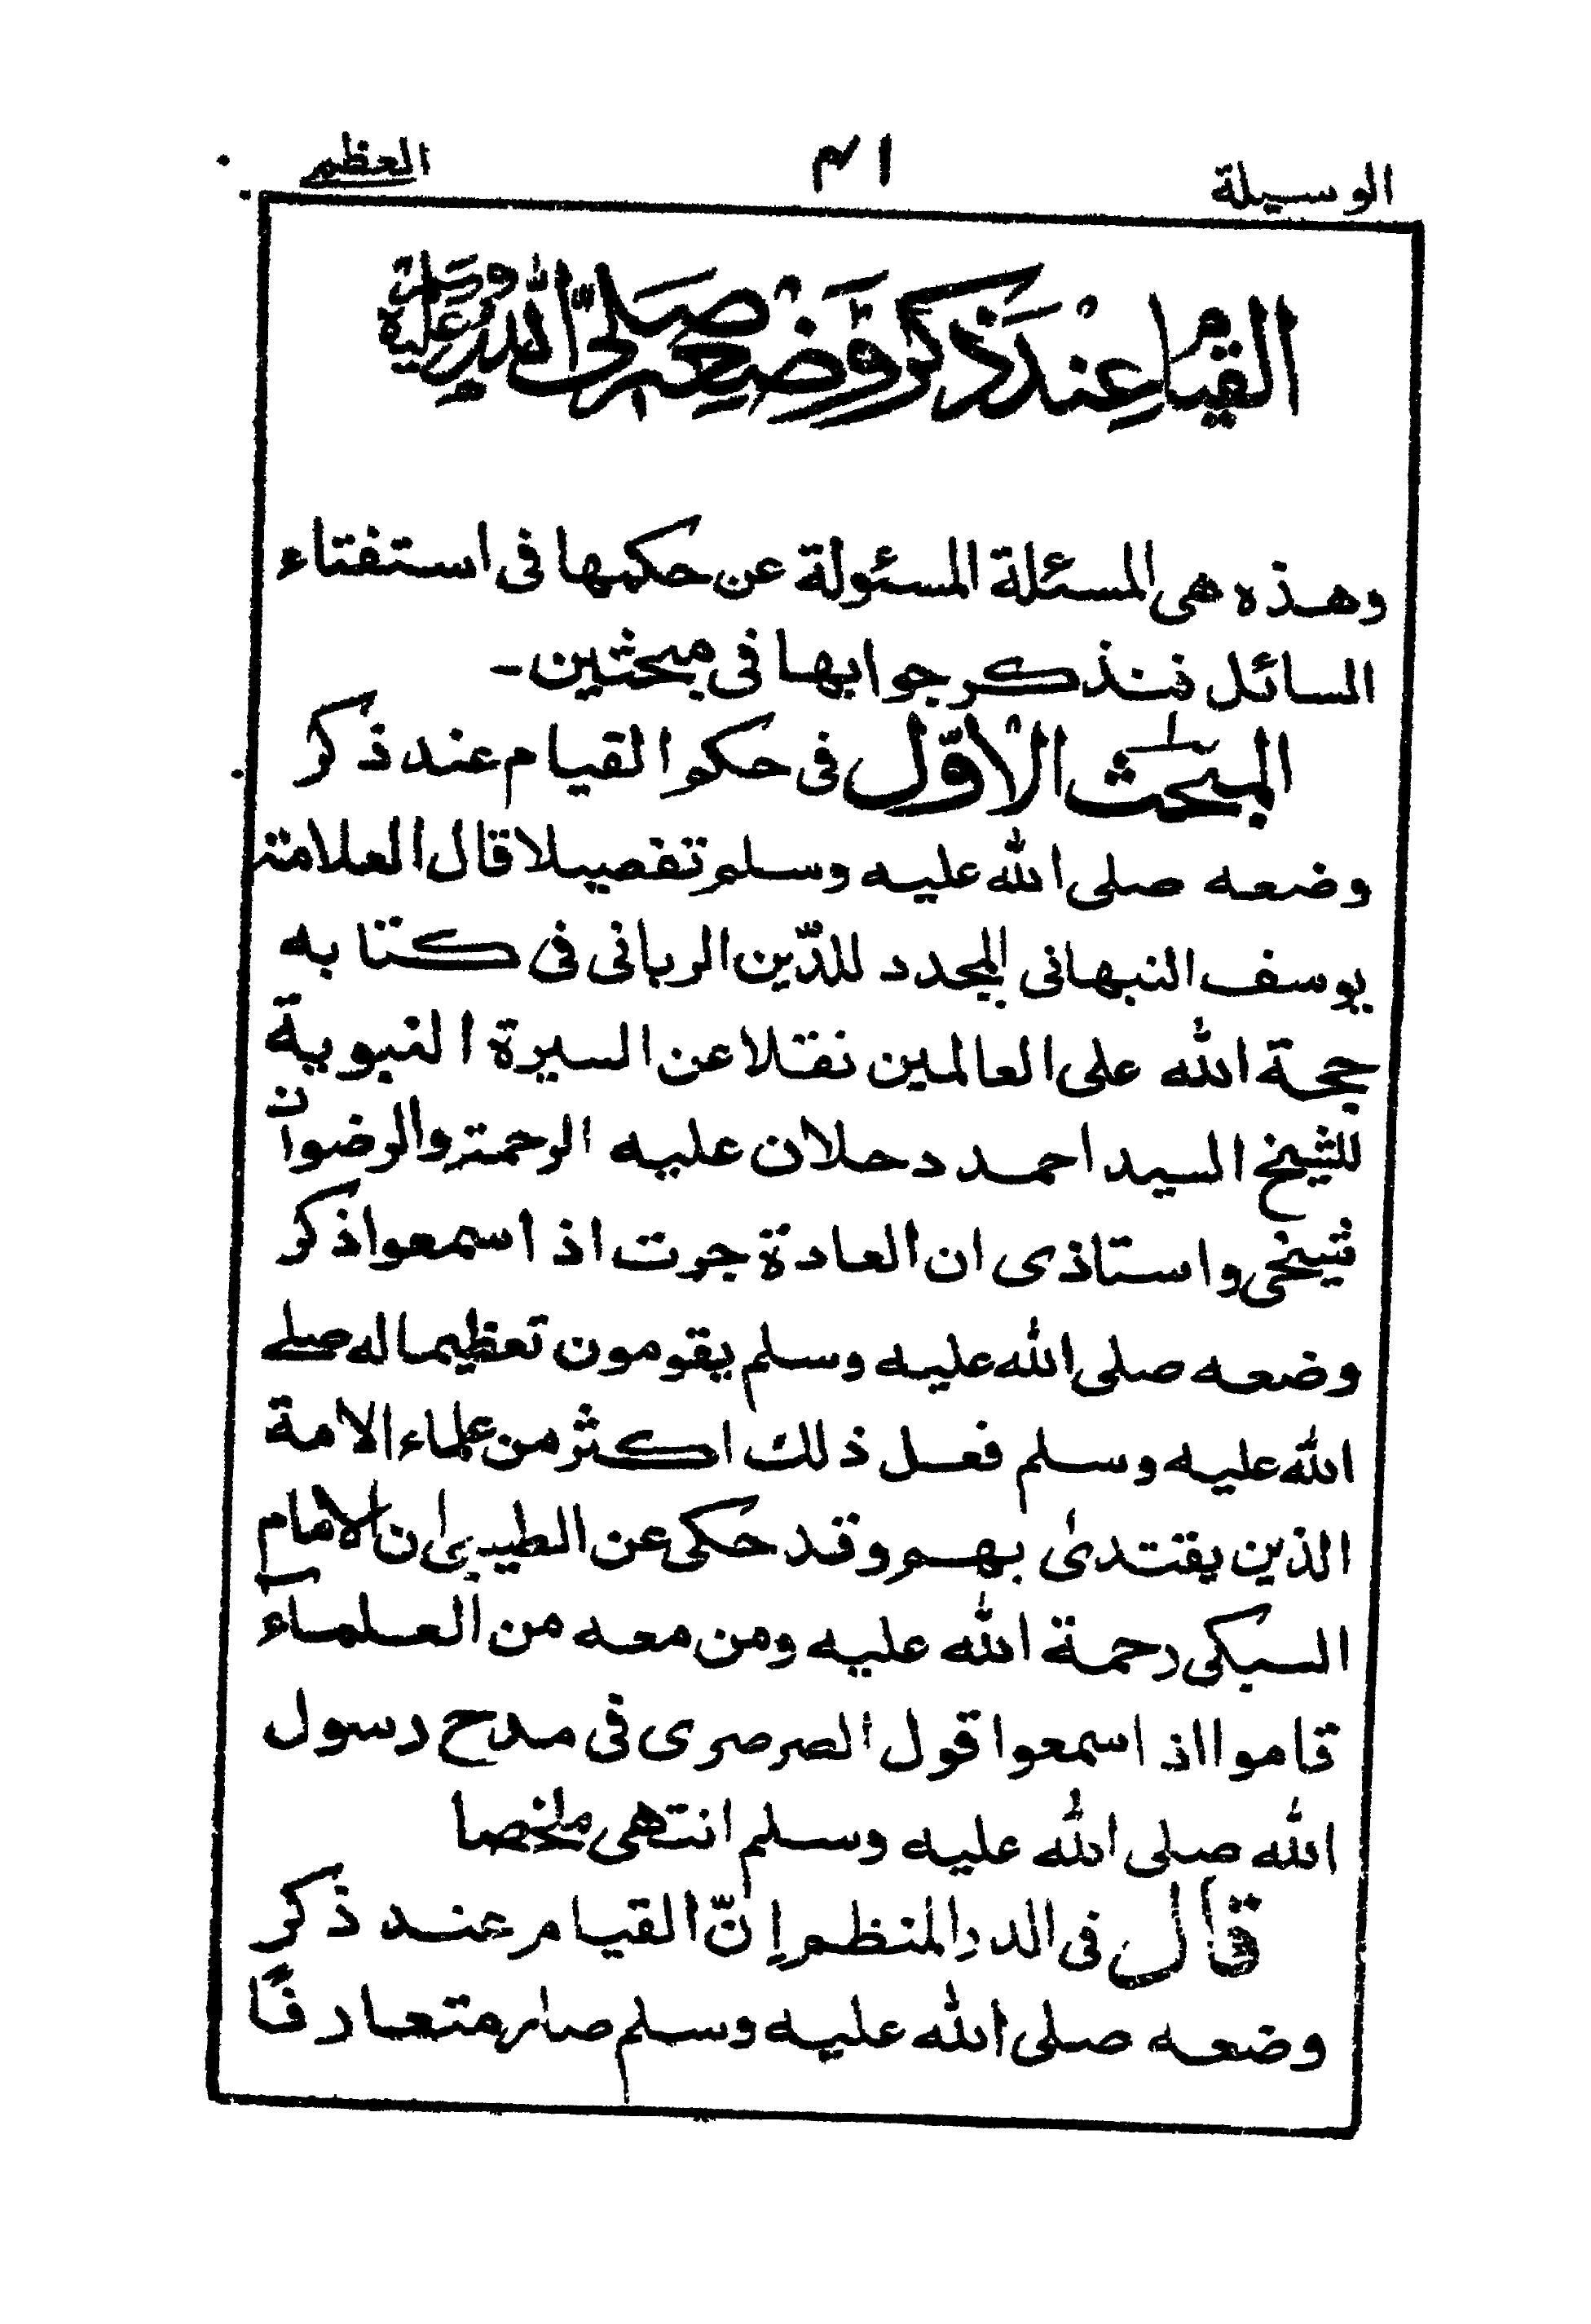 الوسيلة ١٤ العظمى
القيام عند ذكر وضعه صلى الله عليه وسلم
وهذه هى المسئلة المسئولة عن حكمها فى استفتاء
السائل فنذكر جوابها فى مبحثين ۔
المبحث الاوّل فى حكم القيام عند ذكر
وضعه صلى الله عليه وسلم تفصيلا قال العلامة
يوسف النبهانى المجدد للدّين الربانى فى كتابه
حجة الله على العالمين نقلا عن السيرة النبوية
للشيخ السيد احمد دحلان عليه الرحمة والرضوان
شيخى واستاذى ان العادة جرت اذ اسمعوا ذكر
وضعه صلى الله عليه وسلم يقومون تعظيما له صلے
الله عليه وسلم فعل ذلك اكثر من علماء الامة
الذين يقتدىٰ بهم وقد حكى عن الطيبى ان الامام
السبكى رحمة الله عليه ومن معه من العلماء
قاموا اذ اسمعوا قول الصرصرى فى مدح رسول
الله صلى الله عليه وسلم انتهى ملخصا
قال فى الدر المنظم إنّ القيام عند ذكر
وضعه صلى الله عليه وسلم صار متعارفًا